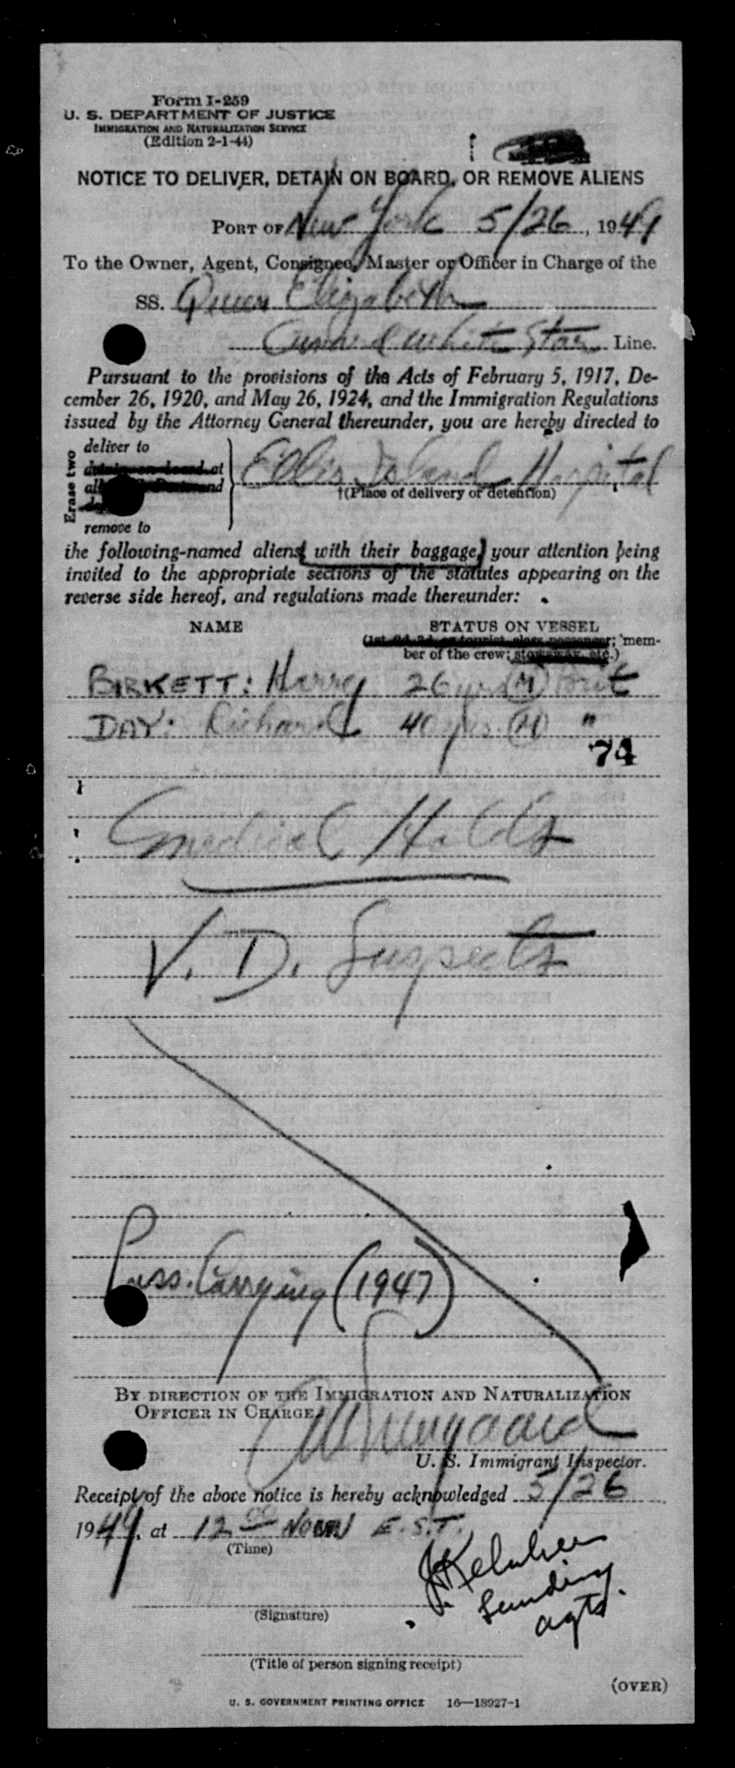 Form I-259
U. S. DEPARTMENT OF JUSTICE
IMMIGRATION AND NATURALIZATION SERVICE
(Edition 2-1-44)
NOTICE TO DELIVER, DETAIN ON BOARD, OR REMOVE ALIENS
PORT OF New York 5/26, 1949
To the Owner, Agent, Consignee, Master or Officer in Charge of the
SS. Queen Elizabeth
Cunard White Star Line.
Pursuant to the provisions of the Acts of February 5, 1917, De-
cember 26, 1920, and May 26, 1924, and the Immigration Regulations
issued by the Attorney General thereunder, you are hereby directed to
Erase two
deliver to
detain on board at
remove to
Ellis Island Hospital
†(Place of delivery or detention)
the following-named aliens (with their baggage) your attention being
invited to the appropriate sections of the statutes appearing on the
reverse side hereof, and regulations made thereunder:
NAME STATUS ON VESSEL
(1st, 2d, 3d, or tourist class passenger; mem-
ber of the crew; stowaway, etc.)
BIRKETT: Harry 26 yrs (M) Brit
DAY: Richard 40 yrs. (M) "
74
Medical Holds
V. D. Suspects
Pass. Carrying (1947)
BY DIRECTION OF THE IMMIGRATION AND NATURALIZATION
OFFICER IN CHARGE,
U. S. Immigrant Inspector.
Receipt of the above notice is hereby acknowledged 5/26
1949, at 12 00 NOON E.S.T.
(Time)
(Signature)
(Title of person signing receipt)
(OVER)
U. S. GOVERNMENT PRINTING OFFICE 16—18927-1